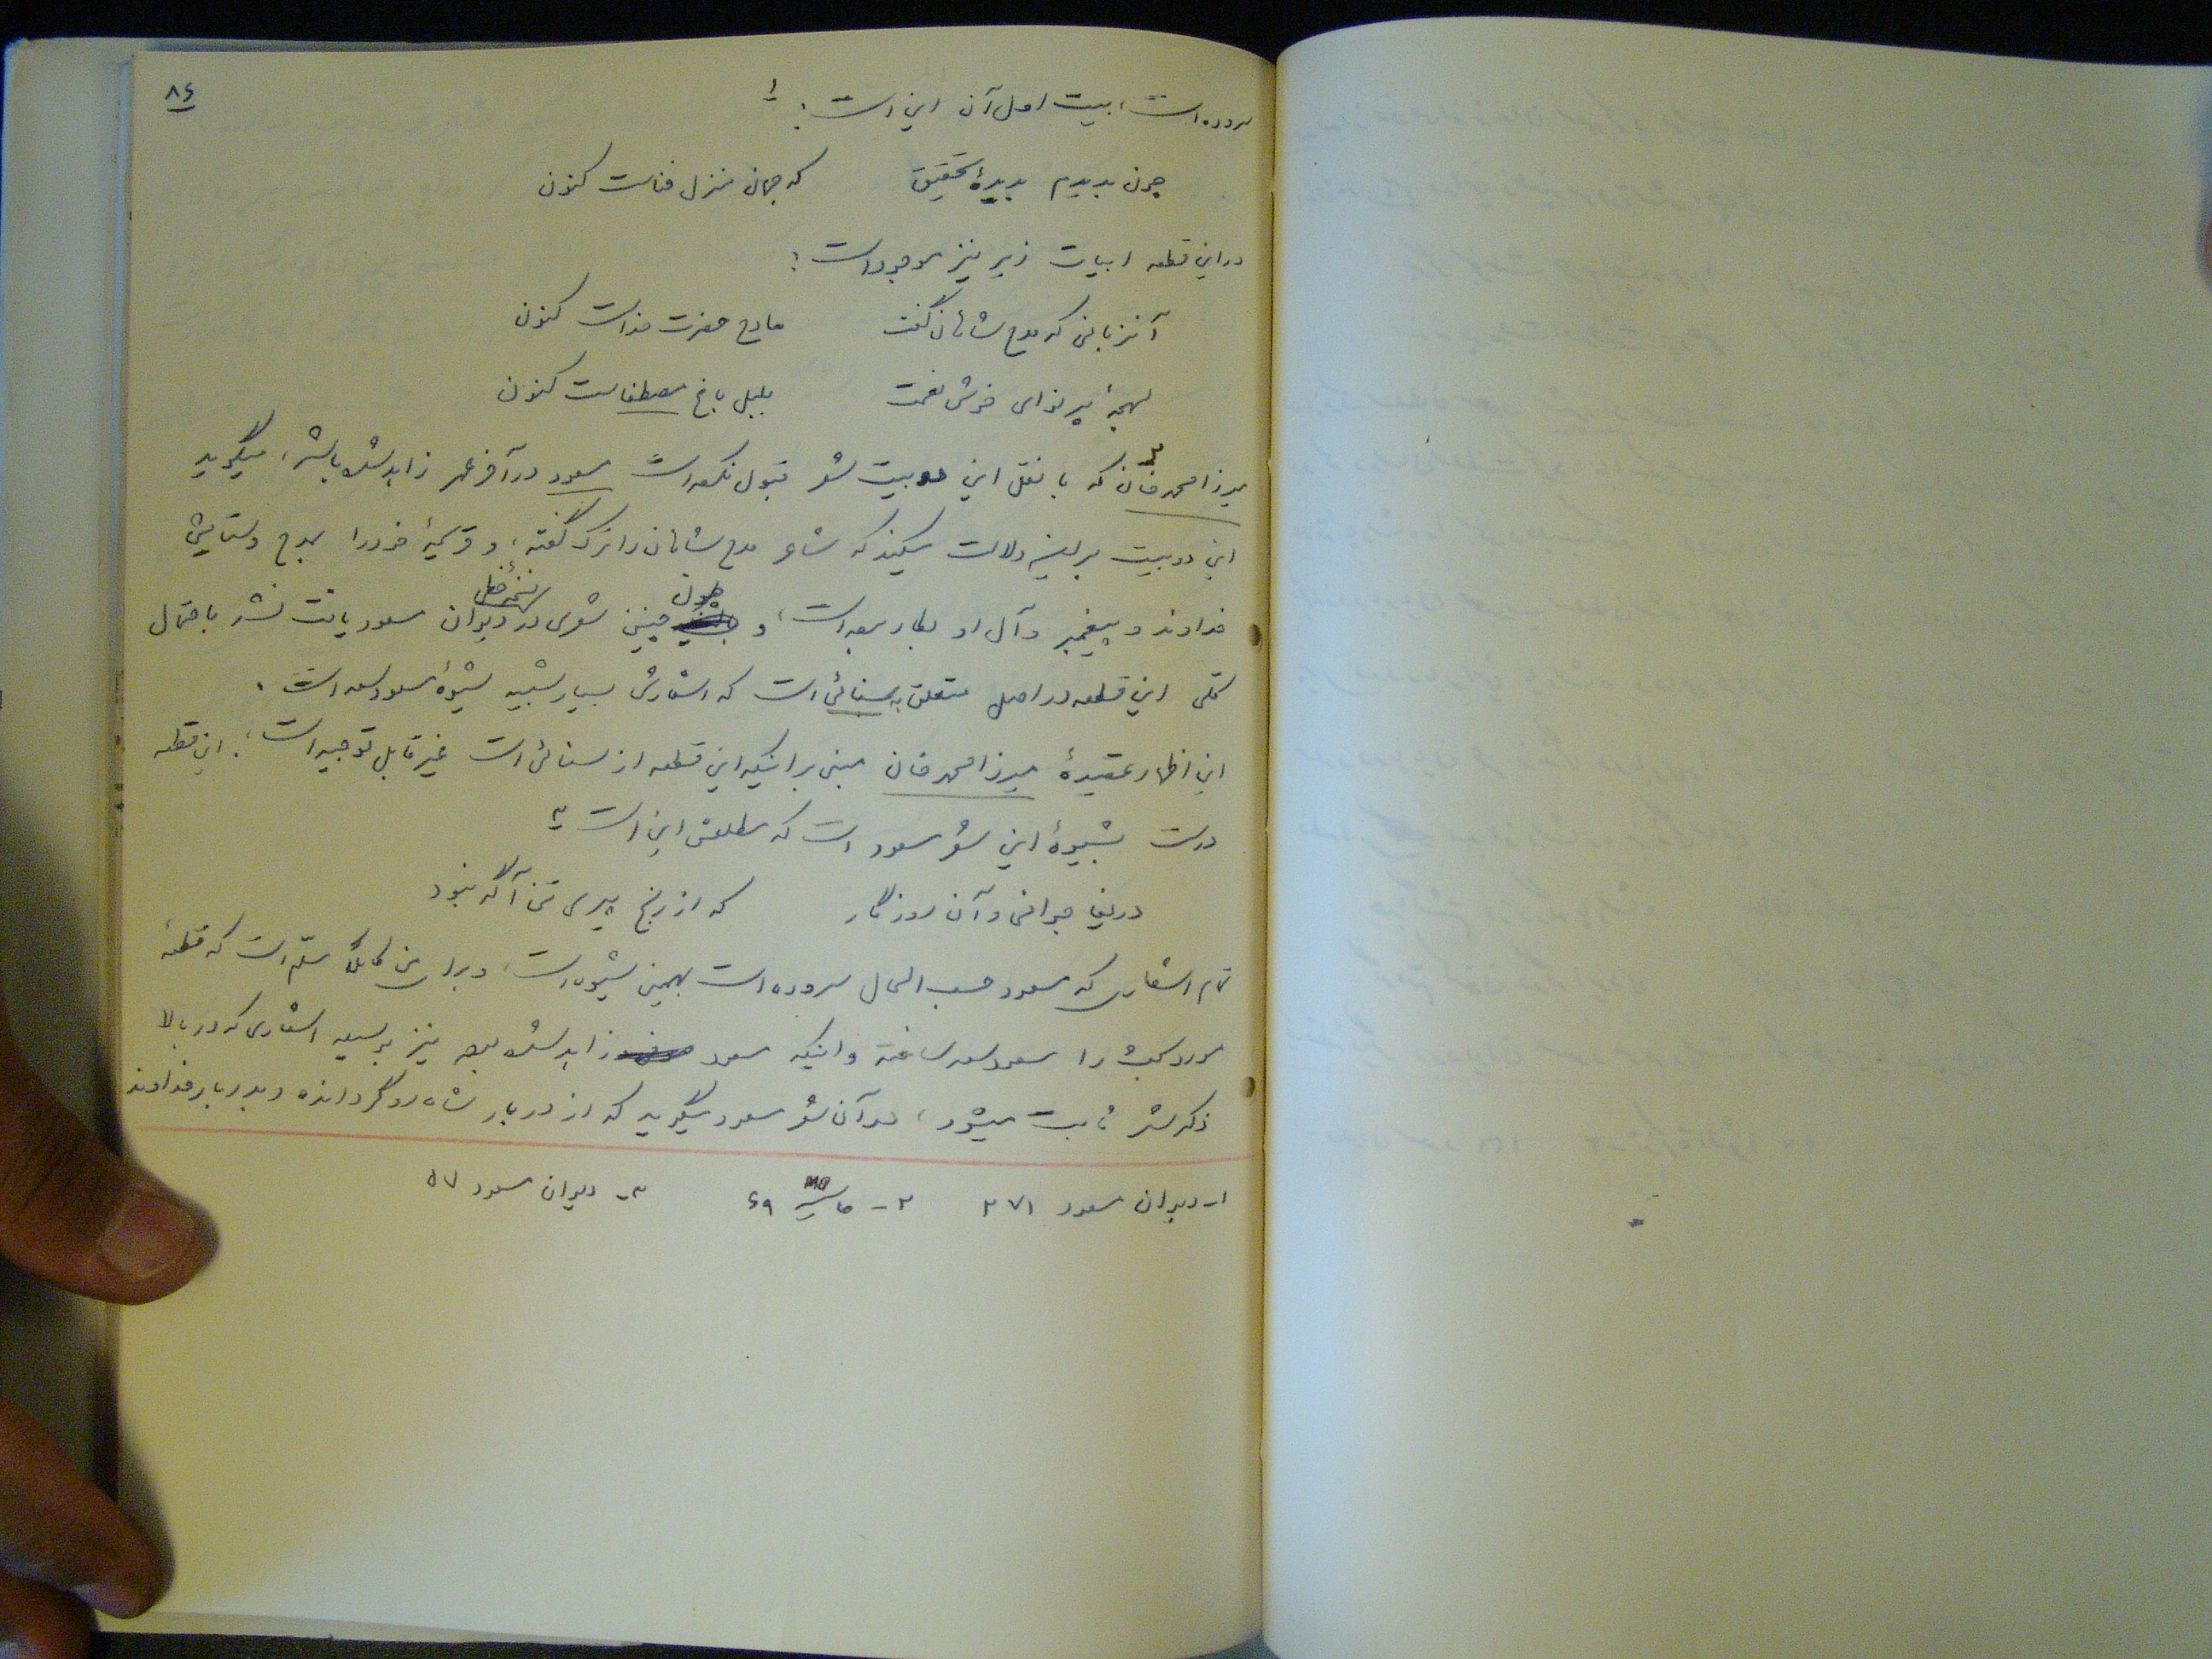 ۸۶
سروده است، بیت اول آن این است: ۱
چون بدیدم بدیدهٔ تحقیق که جهان منزل فناست کنون
در این قطعه ابیات زیر نیز موجود است:
آن زبانی که مدح شاهان گفت مادح حضرت خداست کنون
لهجهٔ پر نوای خوش نغمت بلبل باغ مصطفاست کنون
میرزا محمد خان ۲ که با نقل این دو بیت شعر قبول نکرده است مسعود در آخر عمر زاهد شده باشد، میگوید
این دو بیت بر این دلالت میکند که شاعر مدح شاهان را ترک گفته، و قریحهٔ خود را بمدح و ستایش
خداوند و پیغمبر و آل او بکار برده است، و چون چنین شعری در نسخ خطی دیوان مسعود یافت نشد باحتمال
کلی این قطعه در اصل متعلق به سنائی است که اشعارش بسیار شبیه بشیوهٔ مسعود سعد است.
این اظهار عقیدهٔ میرزا محمد خان مبنی بر اینکه این قطعه از سنائی است غیر قابل توجیه است؛ این قطعه
درست بشیوهٔ این شعر مسعود است که مطلعش این است ۳
دریغا جوانی و آن روزگار که از رنج پیری تن آگه نبود
تمام اشعاری که مسعود حسب الحال سروده است بهمین شیوه است، و برای من کاملاً مسلم است که قطعهٔ
مورد بحث را مسعود سعد ساخته و اینکه مسعود زاهد شده بوده نیز بوسیله اشعاری که در بالا
ذکر شد ثابت میشود، در آن شعر مسعود میگوید که از دربار شاه رو گردانده و بدربار خداوند
۱- دیوان مسعود ۲۷۱ ۲- حاشیه ۶۹ ۳- دیوان مسعود ۵۷